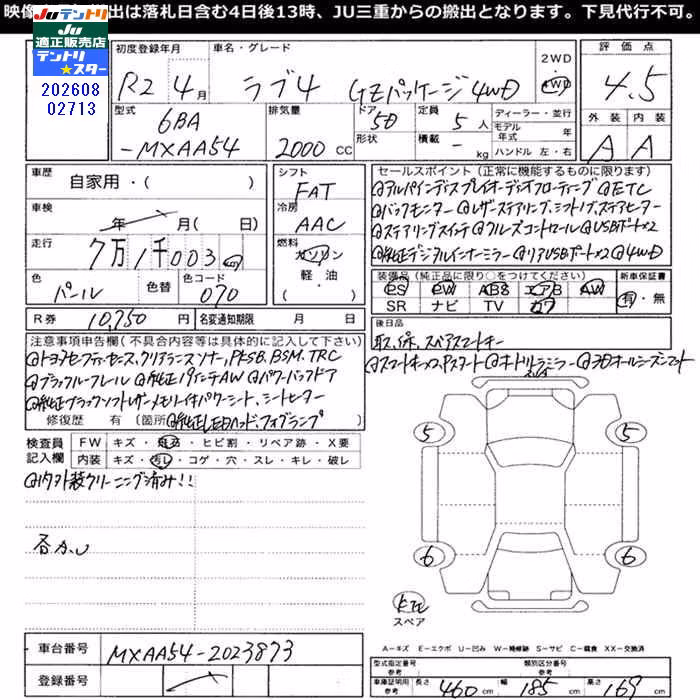 映像 出は落札日含む4日後13時、JU三重からの搬出となります。下見代行不可。
JUテントリ
JU適正販売店
テントリ★スター
202608
02713
初度登録年月 車名・グレード 2WD 評価点
R2 4月 ラブ4 Gzパッケージ4WD 4WD 4.5
型式 排気量 ドア 定員 ディーラー・並行 外装 内装
6BA 5D 5人 モデル年式 年
-MXAA54 2000cc 形状 積載 - kg ハンドル 左・右 A A
車歴 シフト セールスポイント(正常に機能するものに限ります)
自家用・( ) FAT ◎アルパインディスプレイオーディオフローティング ◎ETC
車検 冷房 ◎バックモニター ◎レザーステアリング、シフトノブ、ステアヒーター
年 月( 日) AAC ◎ステアリングスイッチ ◎クルーズコントロール ◎USBポート×2
走行 燃料 ◎純正デジタルインナーミラー ◎リアUSBポート×2 ◎4WD
7万1千003km ガソリン
軽・油
・( )
色 色替 色コード 装備品(純正品に限り○をつけてください) 新車保証書
パール 070 PS PW ABS エアB AW 有・無
SR ナビ TV カワ
R券 10,750円 名変通知期限 月 日 後日品
取、保、スペアスマートキー
注意事項申告欄(不具合内容等は具体的に記入して下さい) ◎スマートキー、プッシュスタート ◎オートリトラミラー ◎3Dオールシーズンマット
◎トヨタセーフティーセンス、クリアランスソナー、PKSB、BSM、TRC
◎ブラックルーフレール ◎純正19インチAW ◎パワーバックドア
◎純正ブラックソフトレザーメモリー付きパワーシート、シートヒーター
修復歴 有(箇所 ◎純正LEDヘッド、フォグランプ )
検査員記入欄 FW キズ・飛石・ヒビ割・リペア跡・X要
内装 キズ・汚レ・コゲ・穴・スレ・キレ・破レ
◎内外装クリーニング済み!!
各カU
5 5
6 6
スペア
A-キズ E-エクボ U-凹み W-補修跡 S-サビ C-腐食 XX-交換済
車台番号 MXAA54-2023873
登録番号
型式指定番号 参考 類別区分番号 参考
車庫証明用 参考 長さ 460cm 幅 185cm 高さ 169cm